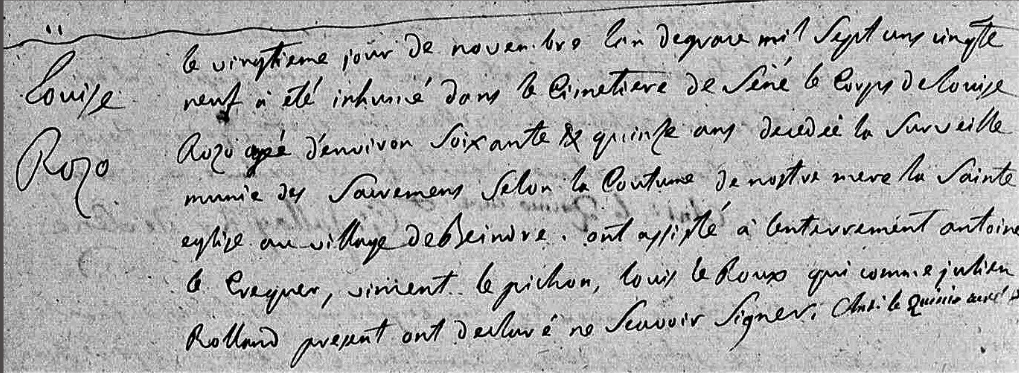 Louise
Rozo
le vingtieme jour de novembre lan degrace mil Sept cens vingte
neuf a été inhumé dans le Cimetiere de Séné le Corps de louise
Rozo agé d'environ Soixante & quinze ans decedée la Surveille
munie des Sacremens Selon la Coutume de nostre mere la Sainte
eglise au village de Beindre. ont assisté à lenterrement antoine
le Crequer, vincent le pichon, louis le Roux qui comme julien
Rolland present ont declaré ne Scavoir Signer. le Quinio